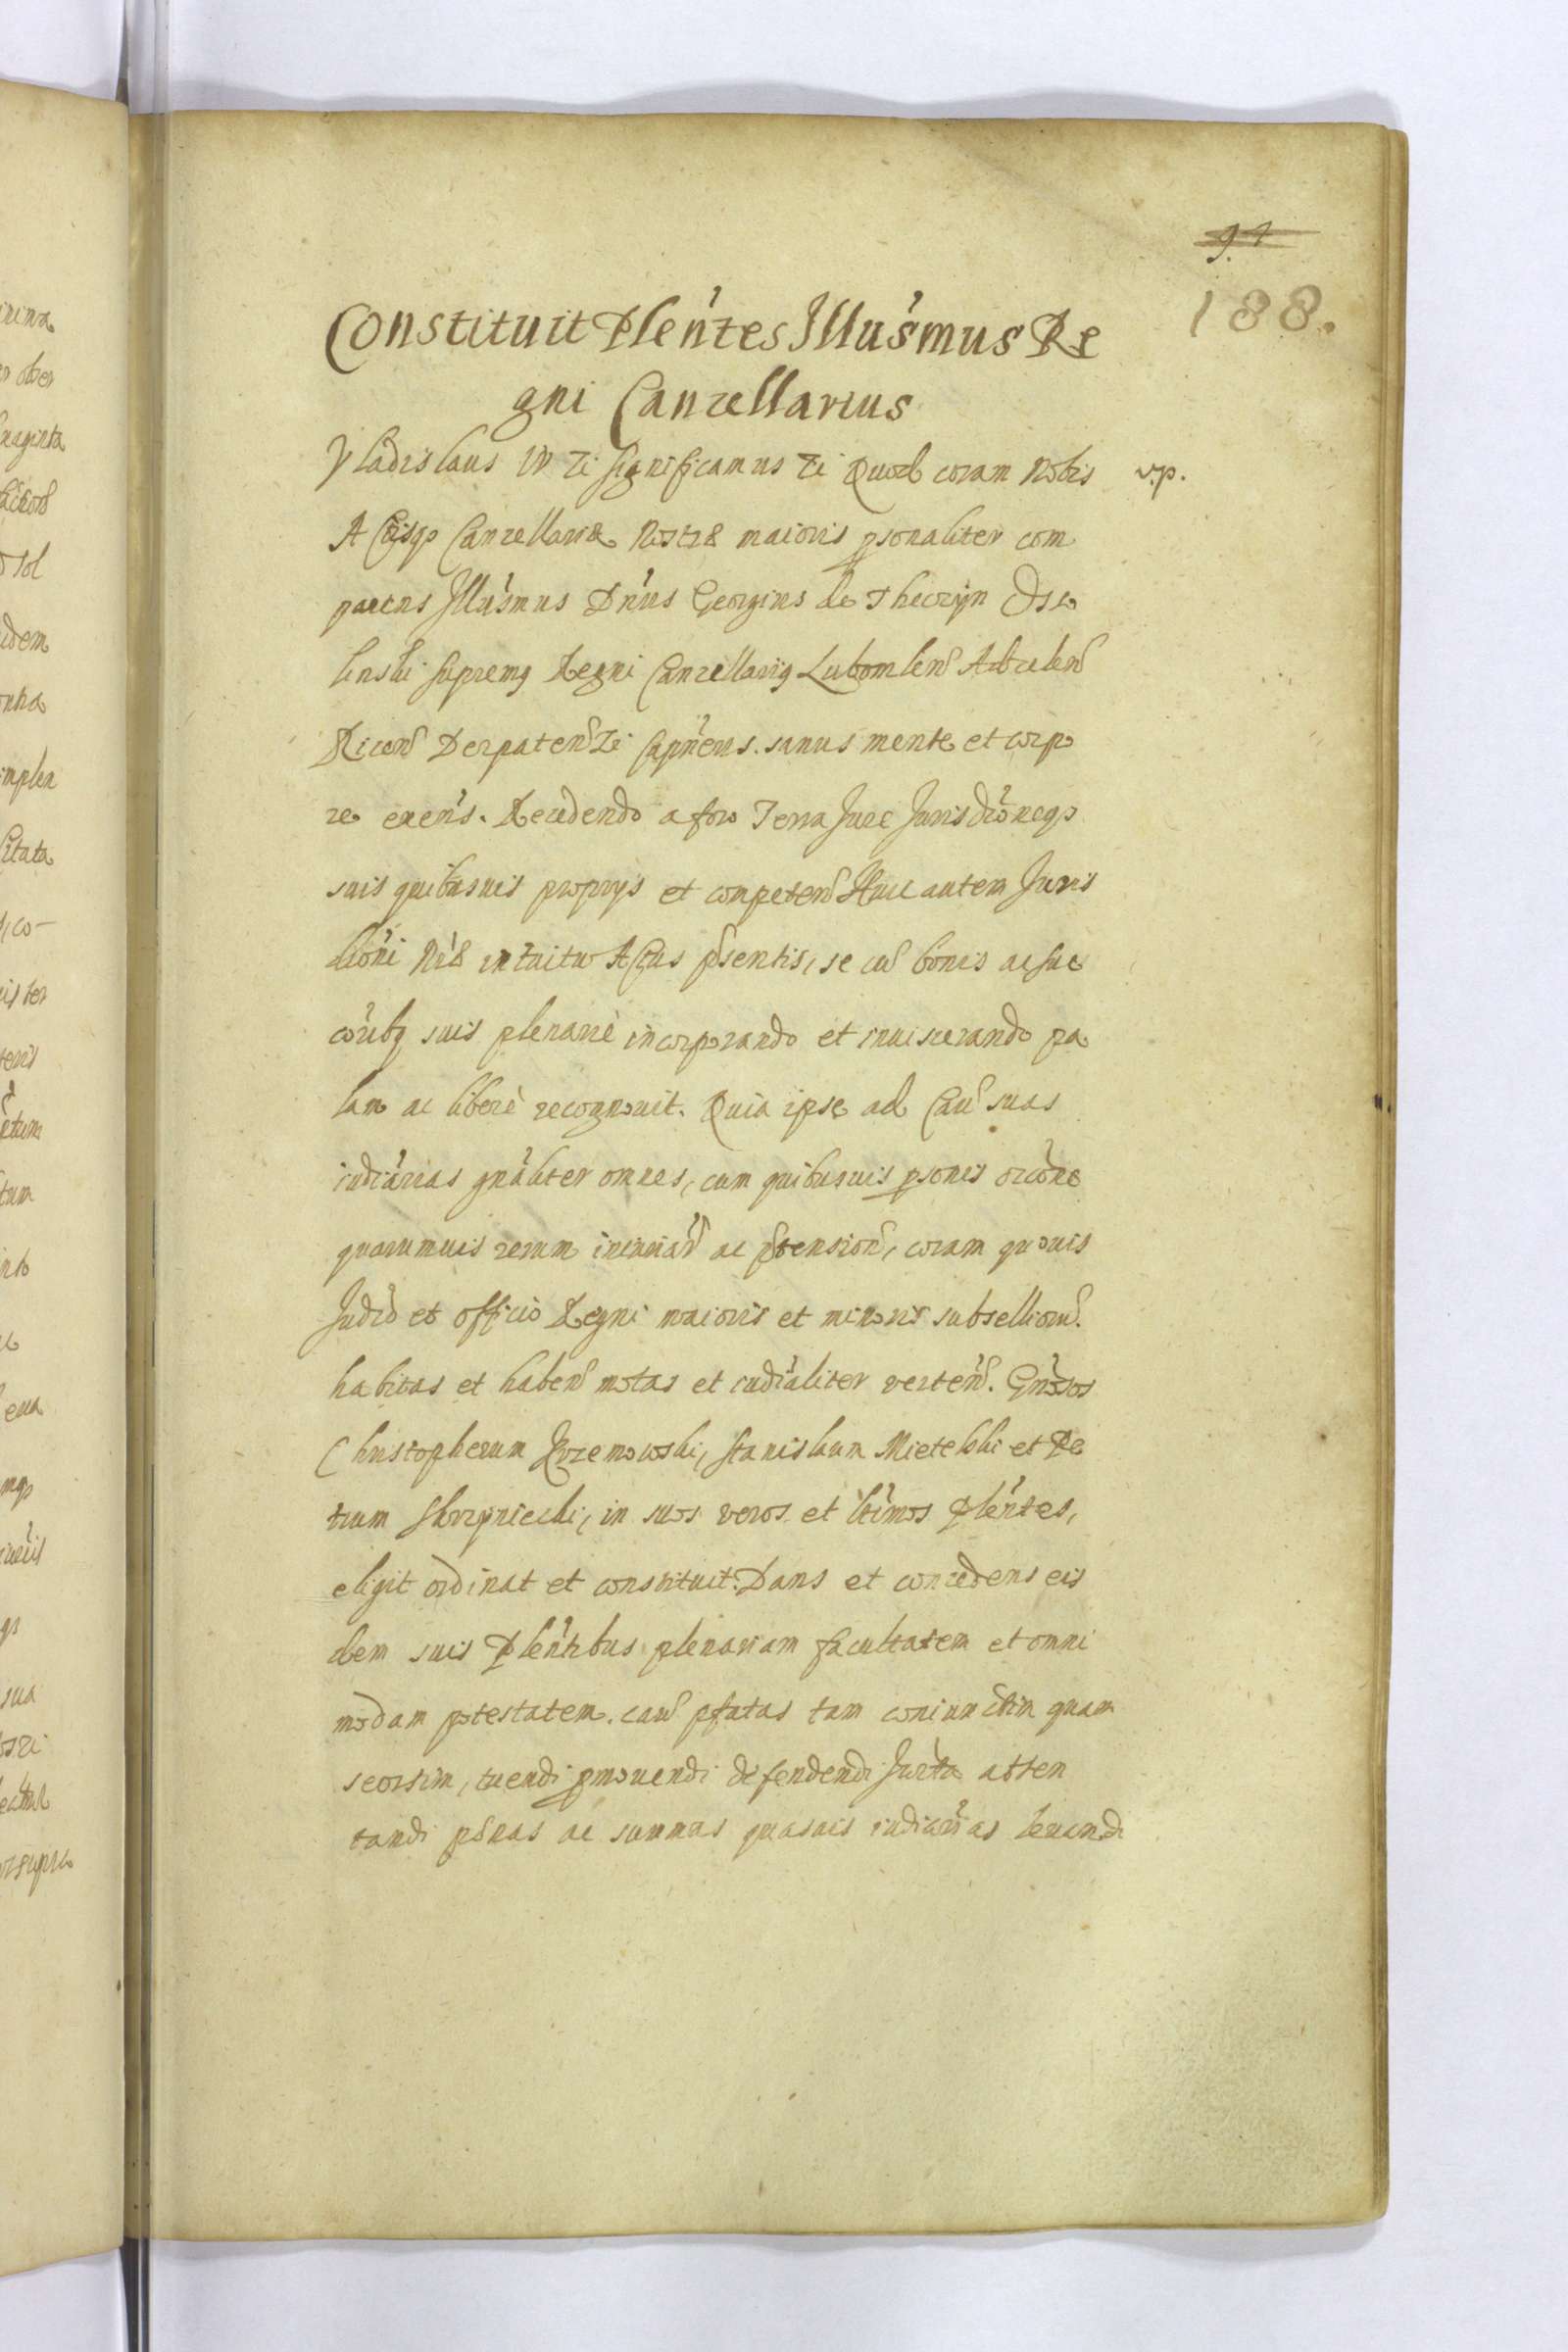 9.4
188.
Constituit Plen̄tes Illus̄mus Re
gni Cancellarius
Vladislaus IV etc significamus etc Quod coram Nobis v.p.
Actisqȝ Cancellariæ Nostræ maioris psonaliter com
parens Illus̄mus Dn̄us Georgius de Theczyn Osso
linski supremꝯ Regni Cancellariꝯ Lubomlen̄ Adzelen̄
Ricen̄ Derpaten̄ etc Capn̄eus. sanus mente et corpo
re exen̄s. Recedendo a foro Terra Jure Jurisdiōneqȝ
suis quibusuis proprijs et competen̄ Huic autem Juris
diōni Nr̄æ intuitu Actus pn̄sentis, se cū bonis ac suc
corībꝯ suis plenariè incorporando et inuiscerando pa
lam ac liberè recognouit. Quia ipse ad Cau̅ suas
iudiārias gnāliter omnes, cum quibusuis psonis oc̄cōne
quarumuis rerum iniuriar̄ ac p̄tension̄, coram quouis
Judiō et officio Regni maioris et minoris subselliorū.
habitas et haben̄ motas et iudiāliter verten̄. Gnōsos
Christopherum Krzemowski, Stanislaum Mietelski et Pe
trum Skrzyniecki, in suos veros et ltīmos Plēntes,
eligit ordinat et constituit. Dans et concedens eis
dem suis Plēntibus plenariam facultatem et omni
modam potestatem. cau̅ pfatas tam coniunctim quam
seorsim, tuendi pmouendi defendendi Jurāta atten
tandi pænas ac summas quasuis iudiciārias leuandi